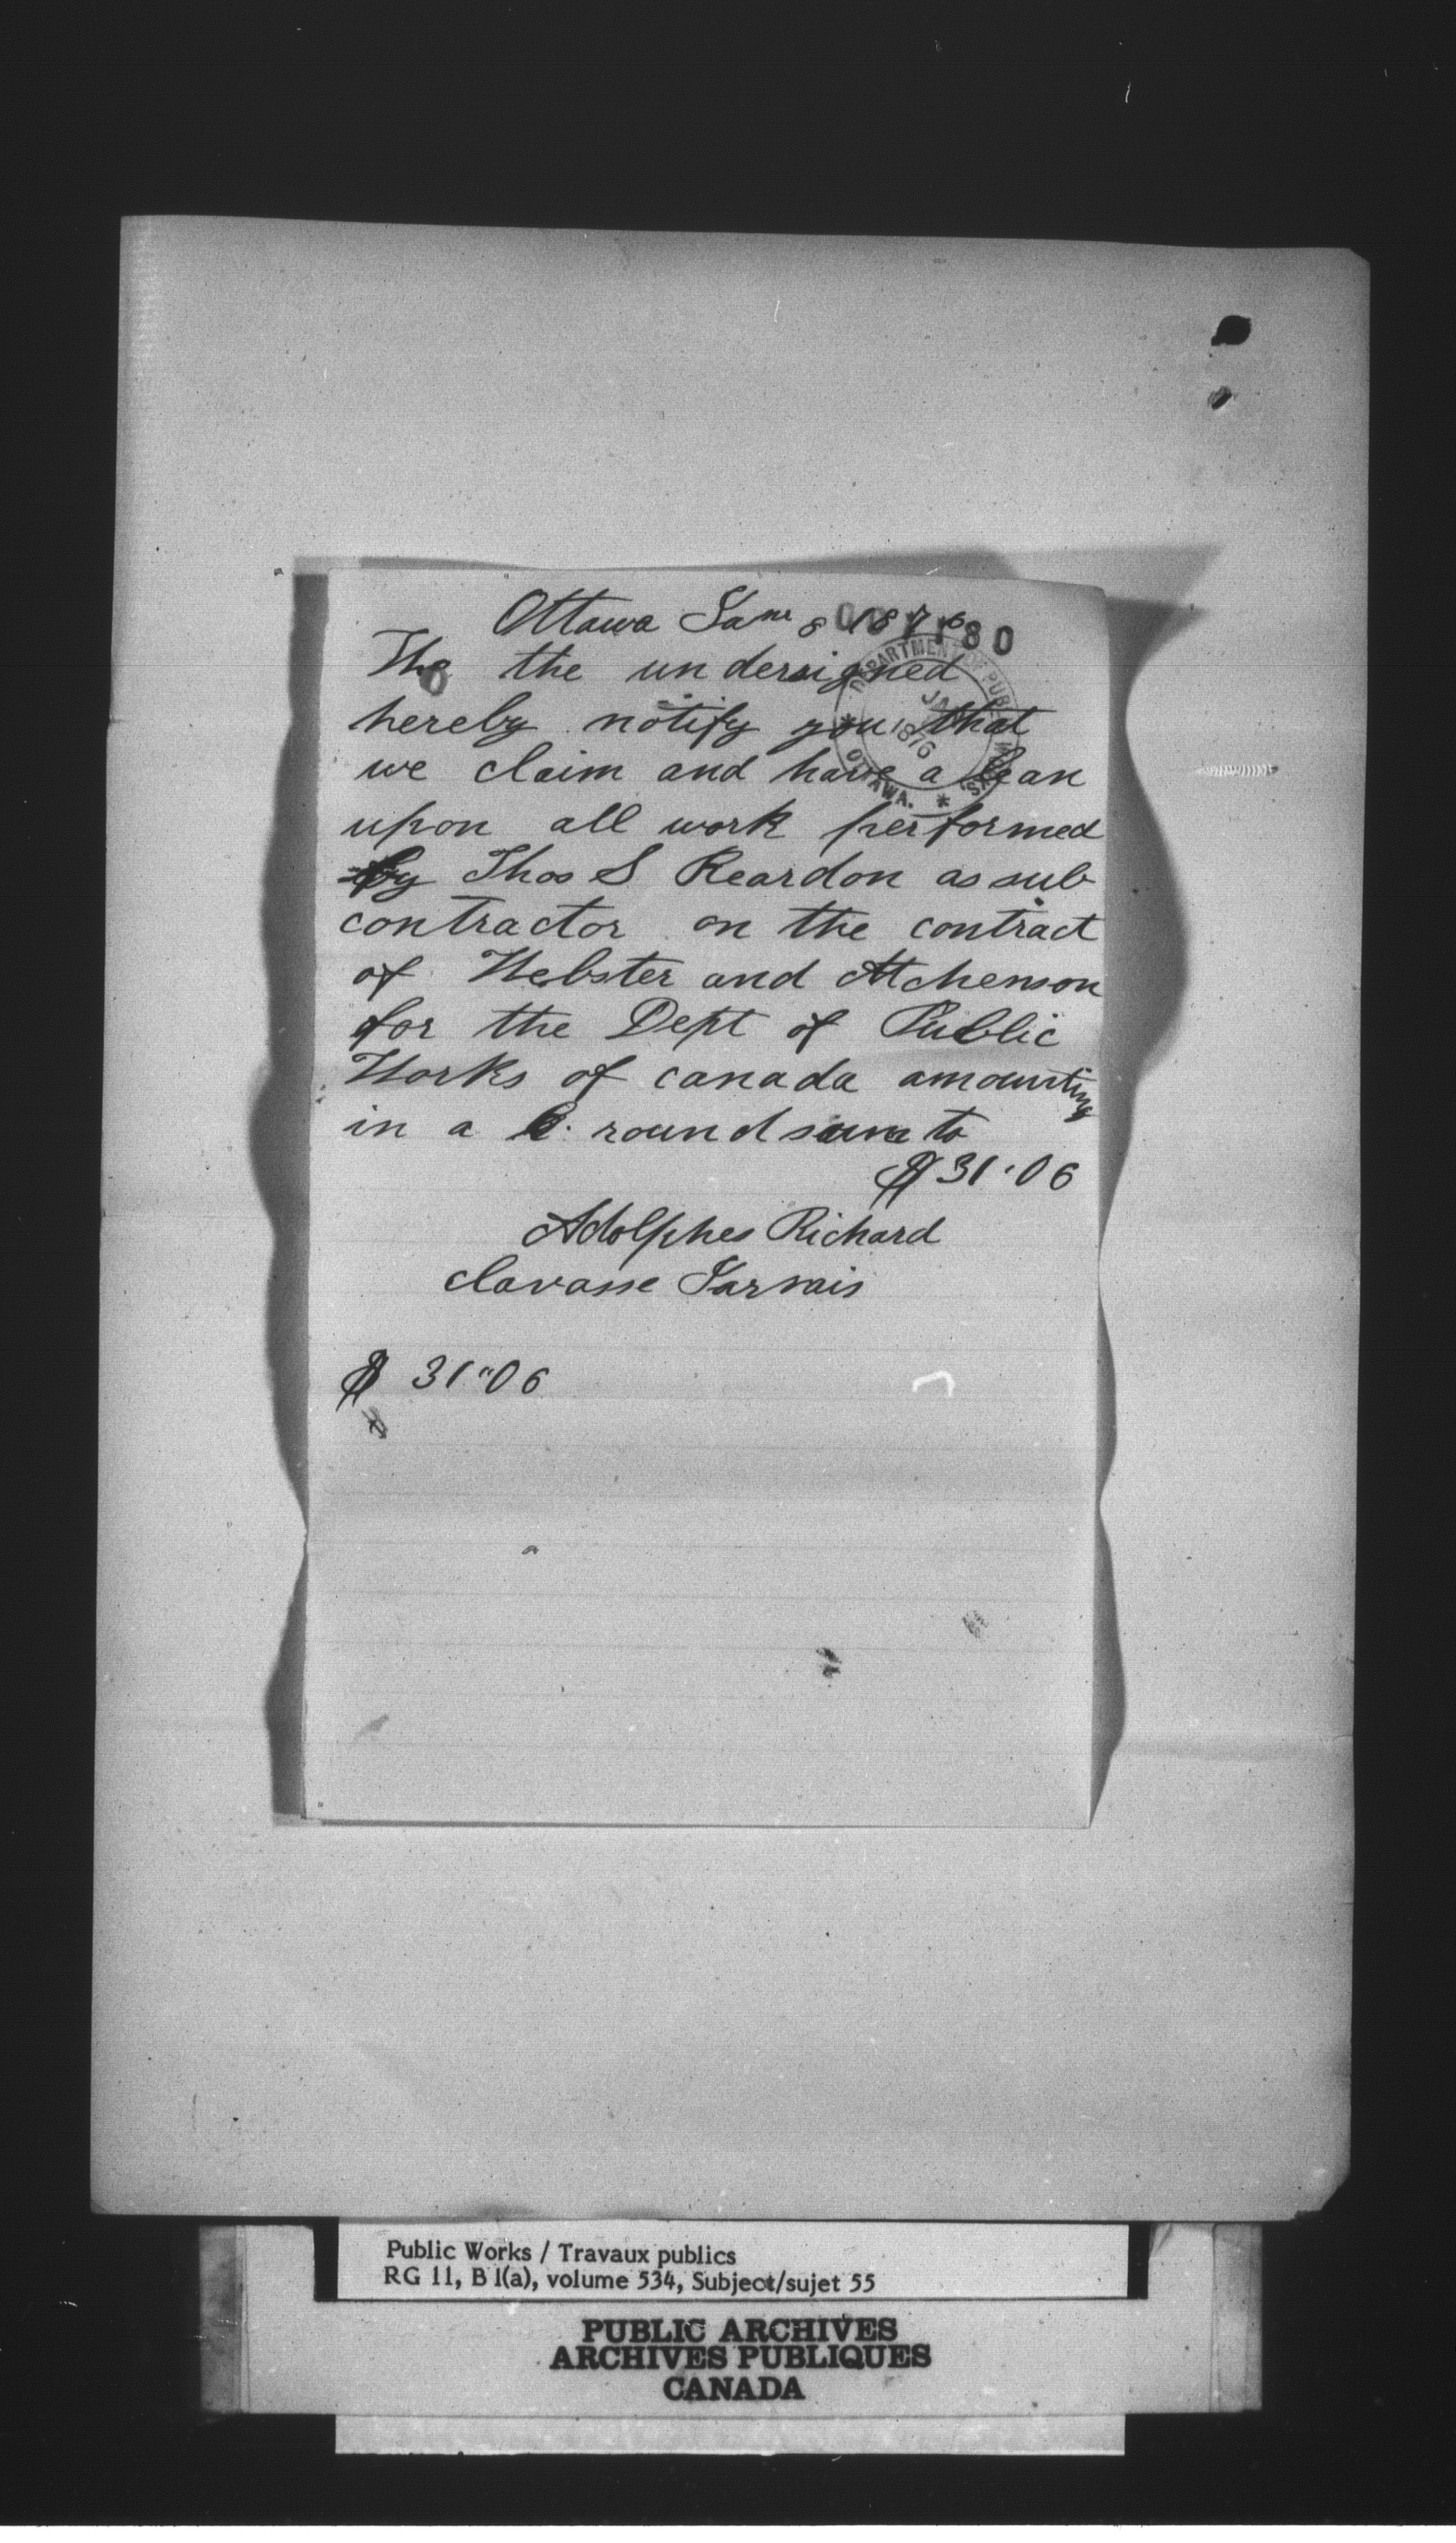 Ottawa Jany 8 1876
The the undersigned
hereby notify you that
we claim and have a lean
upon all work performed
by Thos S Reardon as sub
contractor on the contract
of Webster and Atchenson
for the Dept of Public
Works of canada amounting
in a round sum to
$31.06
Adolphes Richard
clavasse Jarvais
$ 31"06
DEPARTMENT OF PUBLIC WORKS
JA
1876
* OTTAWA. *
80
Public Works / Travaux publics
RG 11, B1(a), volume 534, Subject/sujet 55
PUBLIC ARCHIVES
ARCHIVES PUBLIQUES
CANADA